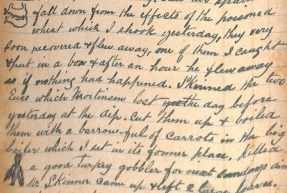 fall down from the effects of the poisoned
wheat which I shook yesterday, they very
soon recovered & flew away, one of them I caught
& put in a box & after an hour he flew away
as if nothing had happened. I skinned the two
Ewes which Mortinson lost the day before
yesterday at the dip. Cut them up & boiled
them with a barrow-ful of Carrots in the big
boiler which I set in its former place. Killed
a good Turkey gobbler for next sundays din
Mr Skinner came up & left 2 large